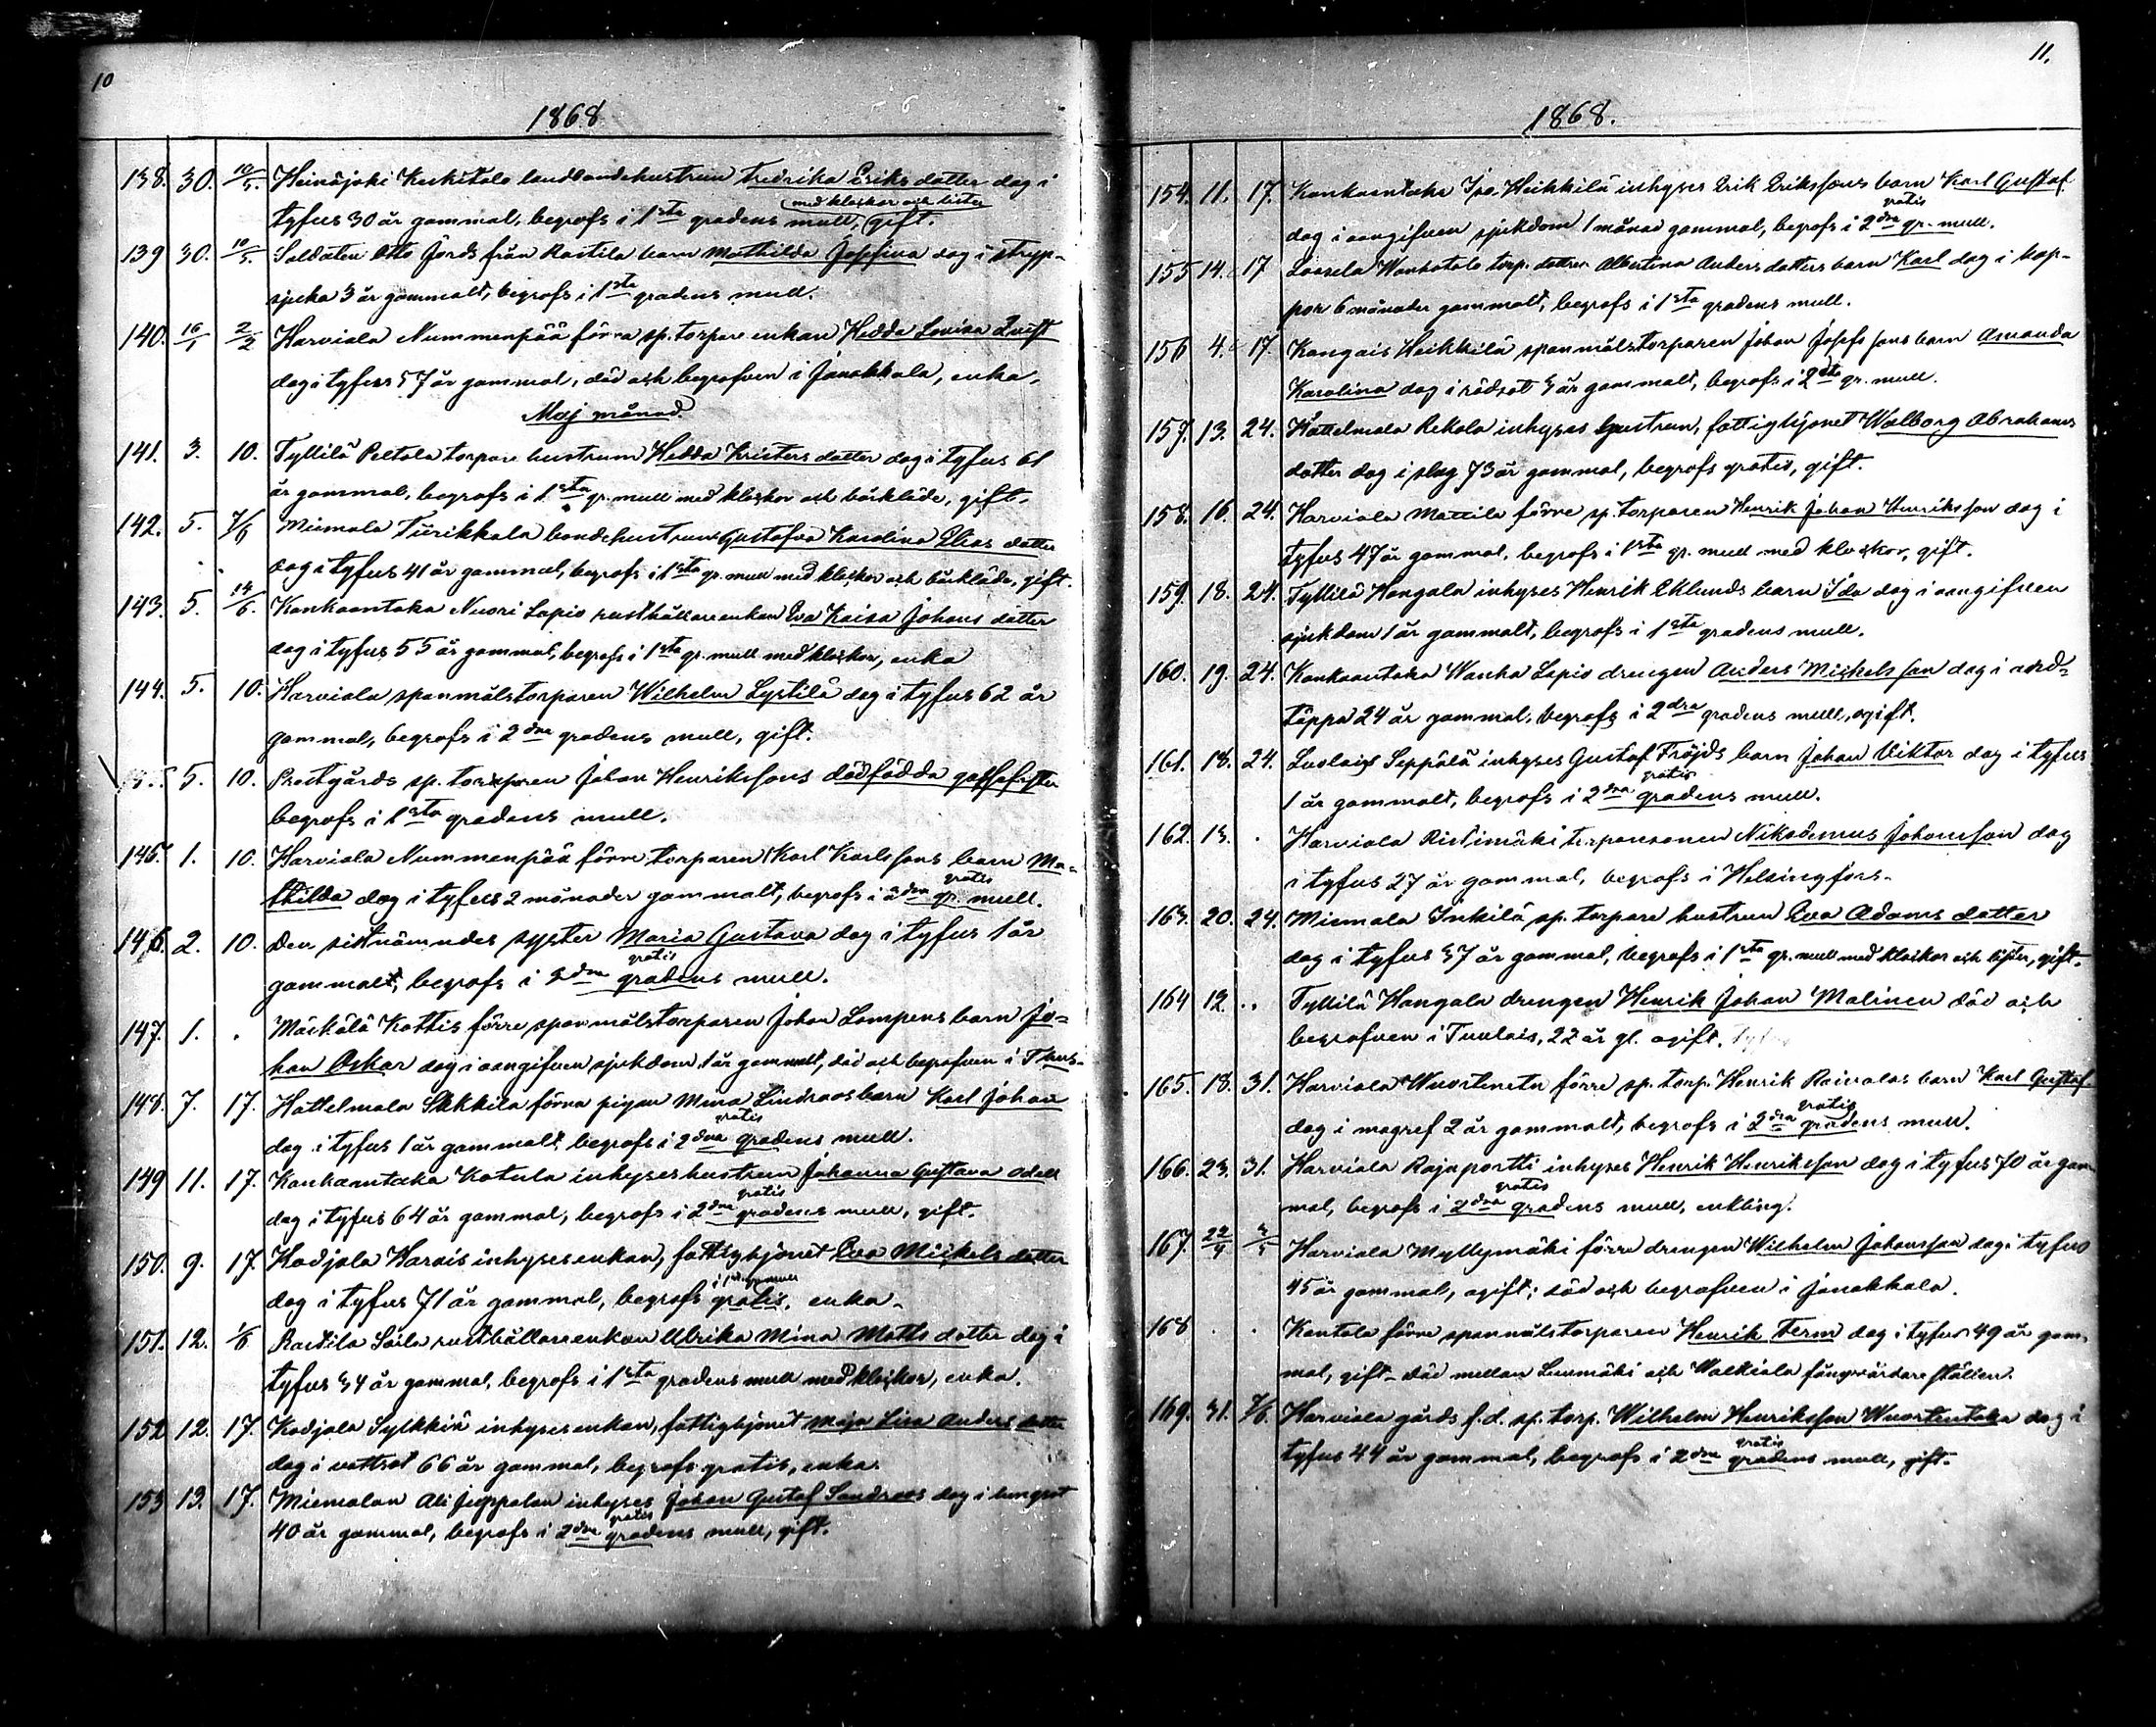 10
1868
138. 30. 10/5. Heinäjoki Keskitalo landbondehustrun Fredrika Eriks dotter dog i
tyfus 30 år gammal, begrofs i 1sta gradens mull, med klockor och lister gift.
139 30. 10/5. Soldaten Otto Fjords från Rastila barn Mathilda Josefina dog i stryp-
sjuka 3 år gammalt, begrofs i 1sta gradens mull.
140. 16/1 2/2 Harviala Nummenpää förra sp. torpare enkan Hedda Lovisa Qvist
dog i tyfus 57 år gammal, död och begrafven i Janakkala, enka.
Maj månad.
141. 3. 10. Tyllilä Peltola torpare hustrun Hedda Kristers dotter dog i tyfus 61
år gammal, begrofs i 1sta gr. mull med klockor och bårkläde, gift.
142. 5. 7/6 Miemola Tiirikkala bondehustrun Gustafva Karolina Elias dotter
dog i tyfus 41 år gammal, begrofs i 1sta gr. mull med klockor och bårkläde, gift.
143. 5. 14/6. Kankaantaka Nuori Lapio rusthållareenkan Eva Kaisa Johans dotter
dog i tyfus 55 år gammal, begrofs i 1sta gr. mull med klockor, enka
144. 5. 10. Harviala spanmålstorparen Wilhelm Lystilä dog i tyfus 62 år
gammal, begrofs i 2dra gradens mull, gift.
5. 10. Prestgårds sp. torparen Johan Henrikssons dödfödda gossefoster
begrofs i 1sta gradens mull.
145. 1. 10. Harviala Nummenpää förre torparen Karl Karlssons barn Ma-
thilda dog i tyfus 2 månader gammalt, begrofs i 2dra gratis gr. mull.
146. 2. 10. Den sistnämndes syster Maria Gustava dog i tyfus 1 år
gammalt, begrofs i 2dra gratis gradens mull.
147. 1. . Mäskälä Kottis förre spanmålstorparen Johan Lampens barn Jo-
han Oskar dog i oangifven sjukdom 1 år gammalt, död och begrafven i Thus-
148. 7. 17. Hattelmala förra pigan Mina Lindroos barn Karl Johan
dog i tyfus 1 år gammalt, begrofs i 2dra gratis gradens mull.
149 11. 17. Kankaantaka Katula inhyseshustrun Johanna Gustava Odell
dog i tyfus 64 år gammal, begrofs i 2dra gratis gradens mull, gift.
150. 9. 17. Kadjala Harvis inhysesenkan, fattighjonet Eva Mickels dotter
dog i tyfus 71 år gammal, begrofs gratis, enka.
151. 12. 1/6 Rastila Soila rusthållareenkan Ulrika Mina Matts dotter dog i
tyfus 54 år gammal, begrofs i 1sta gradens mull med klockor, enka.
152 12. 17. Kadjala Sylkkiä inhysesenkan, fattighjonet Maja Lisa Anders dotter
dog i vattsot 66 år gammal, begrofs gratis, enka.
153 13. 17. Miemolan Ali Juppalan inhyses Johan Gustaf Sandroos dog i lungsot
40 år gammal, begrofs i 2dra gratis gradens mull, gift.
11.
1868.
154. 11. 17. Kankaantaka Ipo. Heikkilä inhyses Erik Erikssons barn Karl Gustaf
dog i oangifven sjukdom 1 månad gammal, begrofs i 2dra gratis gr. mull.
155 14. 17 Loosela Wanhatalo torp. dottren Albertina Anders dotters barn Karl dog i kop-
por 6 månader gammalt, begrofs i 1sta gradens mull.
156 4. 17. Kangais Heikkilä spanmålstorparen Johan Josefssons barn Amanda
Karolina dog i rödsot 5 år gammalt, begrofs i gr. mull.
157. 13. 24. Hattelmala Rekola inhyses hustrun, fattighjonet Walborg Abrahams
dotter dog i slag 73 år gammal, begrofs gratis, gift.
158. 16. 24. Harviala Mattila förre sp. torparen Henrik Johan Henriksson dog i
tyfus 47 år gammal, begrofs i 1sta gr. mull med klockor, gift.
159. 18. 24. Tyllilä Hangala inhyses Henrik Eklunds barn Ida dog i oangifven
sjukdom 1 år gammalt, begrofs i 1sta gradens mull.
160. 19. 24. Kankaantaka Wanha Lapio drengen Anders Mickelsson dog i andt-
täppa 24 år gammal, begrofs i 2dra gradens mull, ogift.
161. 18. 24. Luolais Seppälä inhyses Gustaf Fröjds barn Johan Viktor dog i tyfus
1 år gammalt, begrofs i 2dra gratis gradens mull.
162. 13. . Harviala Ristimäki torparsonen Nikodemus Johansson dog
i tyfus 27 år gammal, begrofs i Helsingfors.
163. 20. 24. Miemala Inkilä sp. torpare hustrun Eva Adams dotter
dog i tyfus 57 år gammal, begrofs i 1sta gr. mull med klockor och lister, gift.
164 12. . . Tyllilä Hangala drengen Henrik Johan Malinen död och
begrafven i Tuulois, 22 år gl. ogift.
165. 18. 31. Harviala Wuortenetu förre sp. torp. Henrik Raivalas barn Karl Gustaf
dog i magref 2 år gammalt, begrofs i 2dra gratis gradens mull.
166. 23. 31. Harviala Rajaportti inhyses Henrik Henriksson dog i tyfus 70 år gam-
mal, begrofs i 2dra gratis gradens mull, enkling.
167. 22/4 3/5 Harviala Myllymäki förre drengen Wilhelm Johansson dog i tyfus
45 år gammal, ogift; död och begrafven i Janakkala.
168 . . Kantola förre spanmålstorparen Henrik Ferm dog i tyfus 49 år gam-
mal, gift. död mellan Luumäki och Walkiala fångvårdare ställen.
169. 31. 7/6. Harviala gårds f.d. sp. torp. Wilhelm Henriksson Wuortentaka dog i
tyfus 44 år gammal, begrofs i 2dra gratis gradens mull, gift.